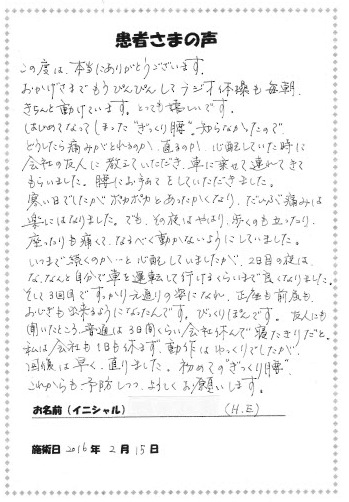 患者さまの声
この度は、本当にありがとうございます。
おかげさまでもうぴんぴんしてラジオ体操も毎朝、
きちんと動けています。とっても嬉しいです。
はじめてなってしまった"ぎっくり腰"。知らなかったので
どうしたら痛みがとれるのか、直るのか、心配していた時に
会社の友人に教えていただき、車に乗せて連れてきて
もらいました。腰にお灸をしていただきました。
寒い日でしたがポカポカとあったかくなり、だいぶ痛みは
楽にはなりました。でも、その夜はやはり、歩くのも立ったり、
座ったりも痛くて、なるべく動かないようにしていました。
いつまで続くのか…と心配していましたが、2日目の夜は、
な、なんと自分で車を運転して行けるくらいまで良くなりました。
そして3回目ですっかり元通りの姿になれ、正座も前屈も
おじぎも出来るようになったんです。びっくりぽんです。友人にも
聞いたところ、普通は3日間くらい会社休んで寝たきりだと。
私は会社も1日も休まず、動作はゆっくりでしたが、
回復は早く、直りました。初めての"ぎっくり腰"
これからも予防しつつ、よろしくお願いします。
お名前(イニシャル) (H.E)
施術日 2016年 2月 15日